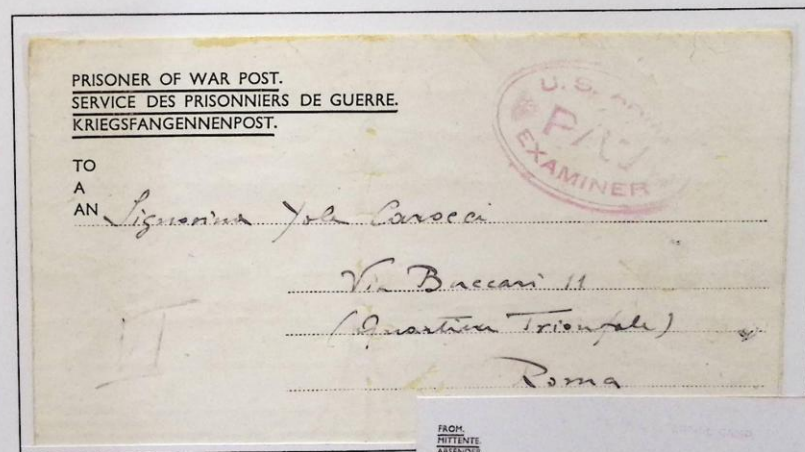 PRISONER OF WAR POST.
SERVICE DES PRISONNIERS DE GUERRE.
KRIEGSFANGENNENPOST.
U. S.
EXAMINER
TO
A
AN Signorina Yole Carocci
Via Buccari 11
(Quartiere Trionfale)
Roma
II
FROM.
MITTENTE.
ABSENDER